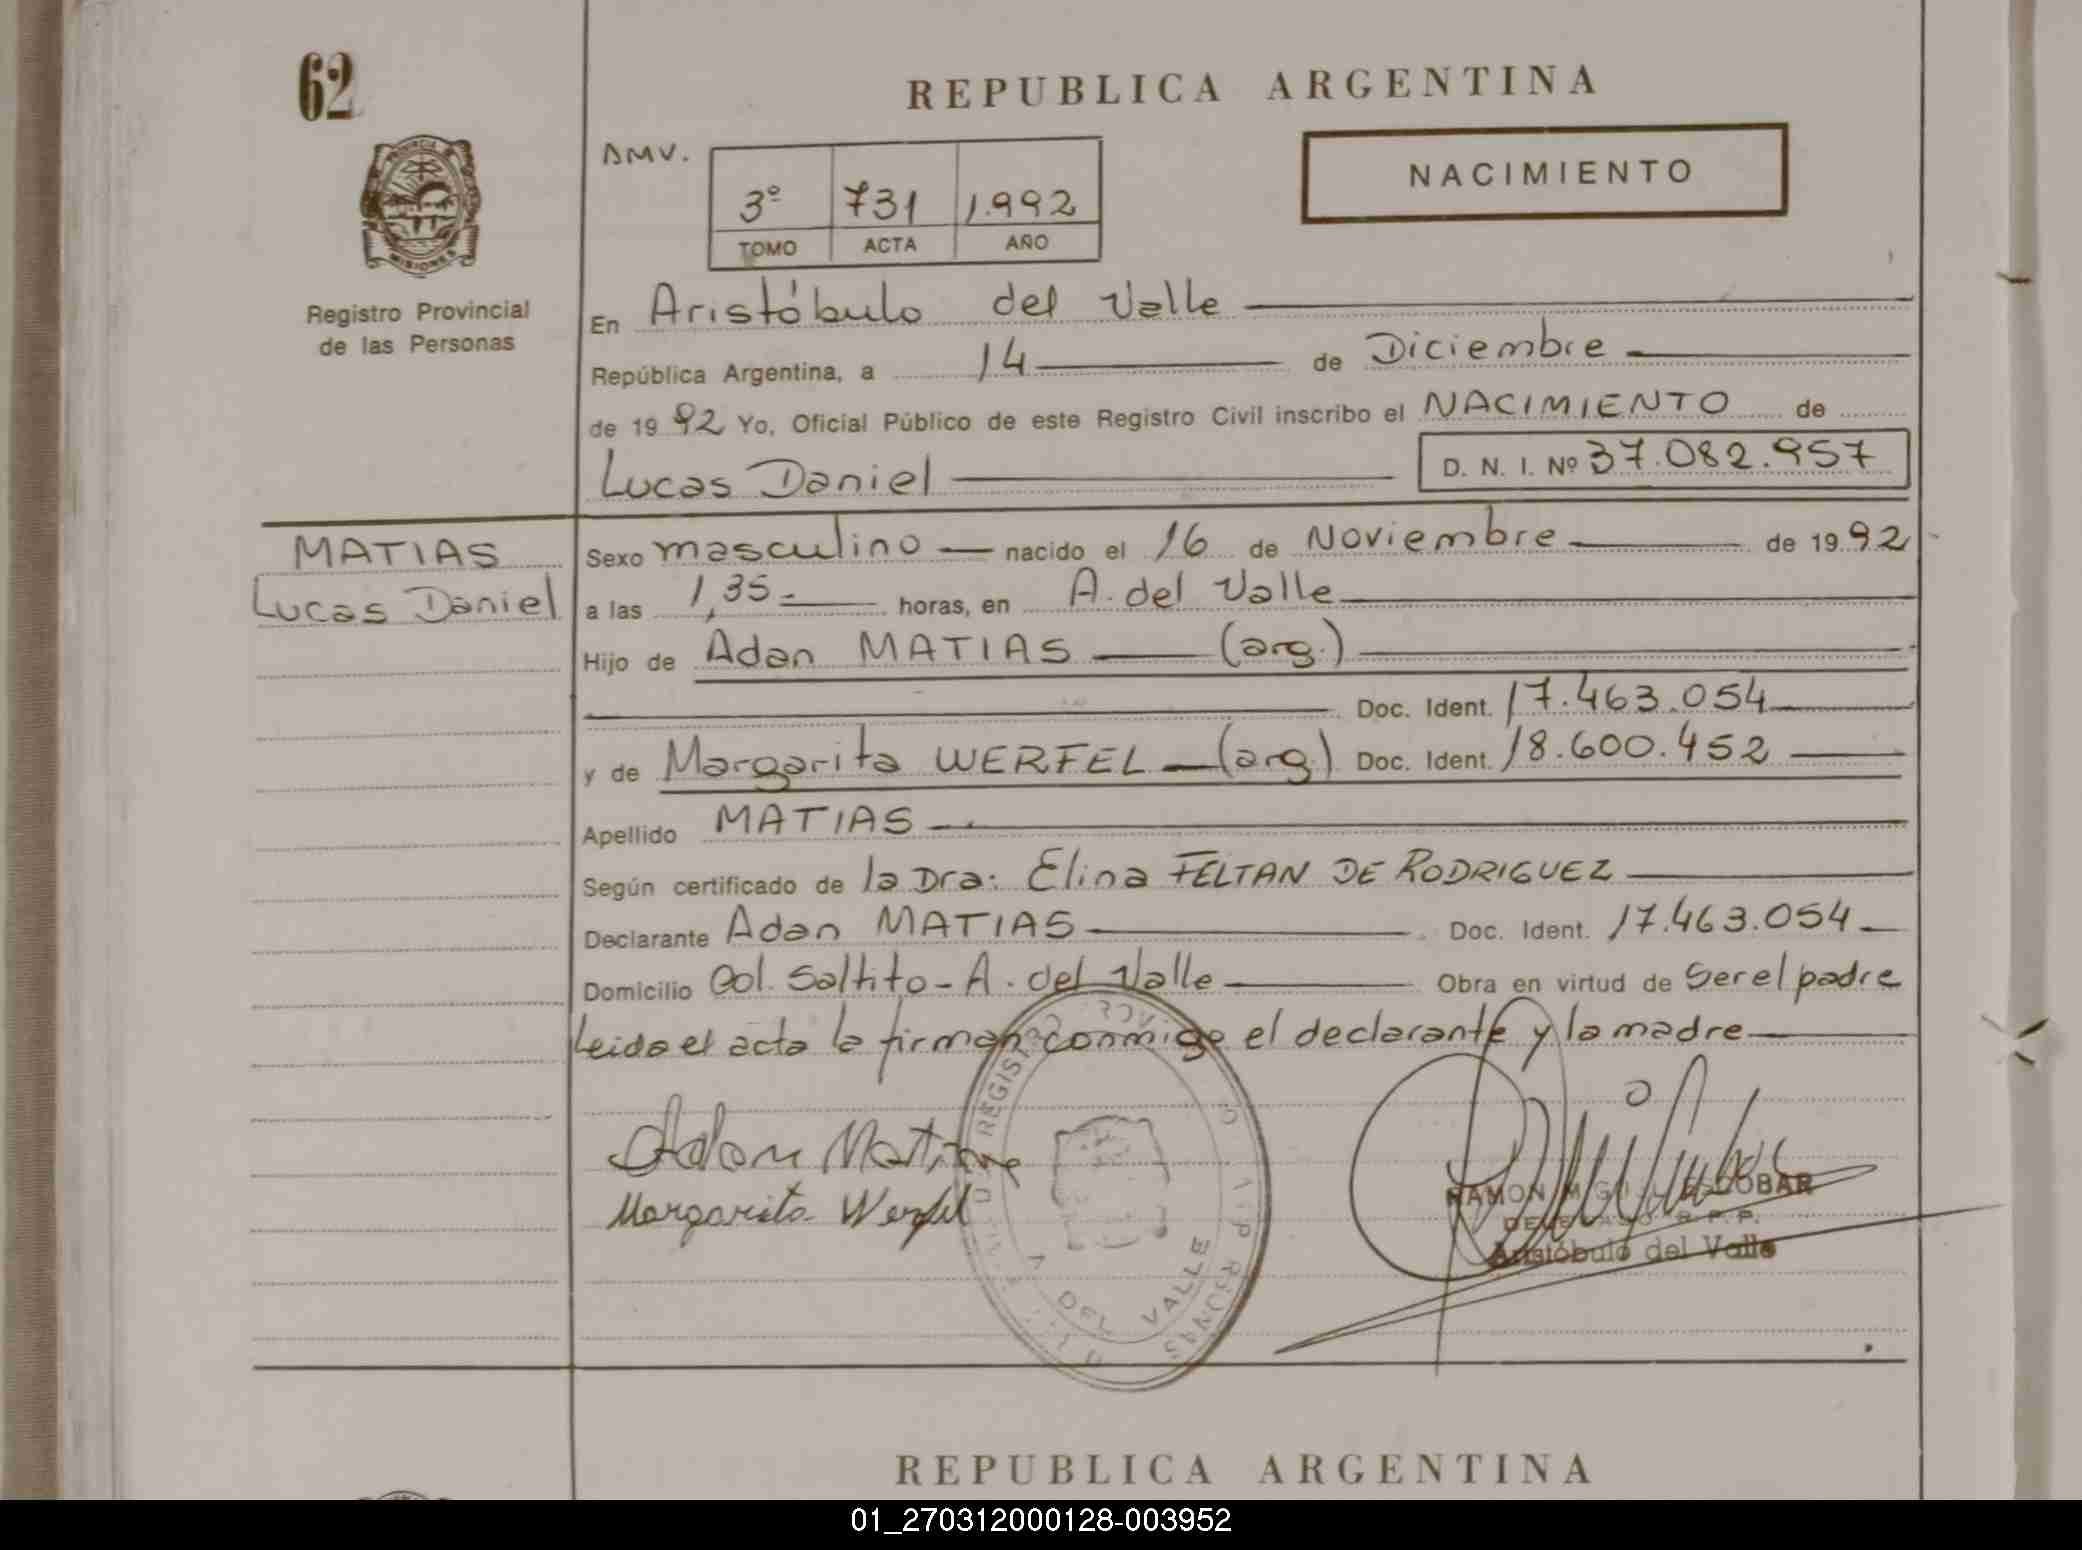 62
REPUBLICA ARGENTINA
PROVINCIA DE
MISIONES
Registro Provincial
de las Personas
AMV.
3º 731 1.992
TOMO ACTA AÑO
NACIMIENTO
En Aristóbulo del Valle
República Argentina, a 14 de Diciembre
de 1992 Yo, Oficial Público de este Registro Civil inscribo el NACIMIENTO de
Lucas Daniel D. N. I. Nº 37.082.957
MATIAS
Lucas Daniel
Sexo masculino nacido el 16 de Noviembre de 1992
a las 1,35.- horas, en A. del Valle
Hijo de Adan MATIAS (arg.)
Doc. Ident. 17.463.054
y de Margarita WERFEL (arg) Doc. Ident. 18.600.452
Apellido MATIAS
Según certificado de la Dra: Elina FELTAN DE RODRIGUEZ
Declarante Adan MATIAS Doc. Ident. 17.463.054
Domicilio Col. Saltito - A. del Valle Obra en virtud de Ser el padre
Leida el acta la firman conmigo el declarante y la madre
Adan Matias
Margarita Werfel
DEL VALLE
RAMON MIGUEL ESCOBAR
DELEGADO R.P.P.
Aristóbulo del Valle
REPUBLICA ARGENTINA
01_270312000128-003952